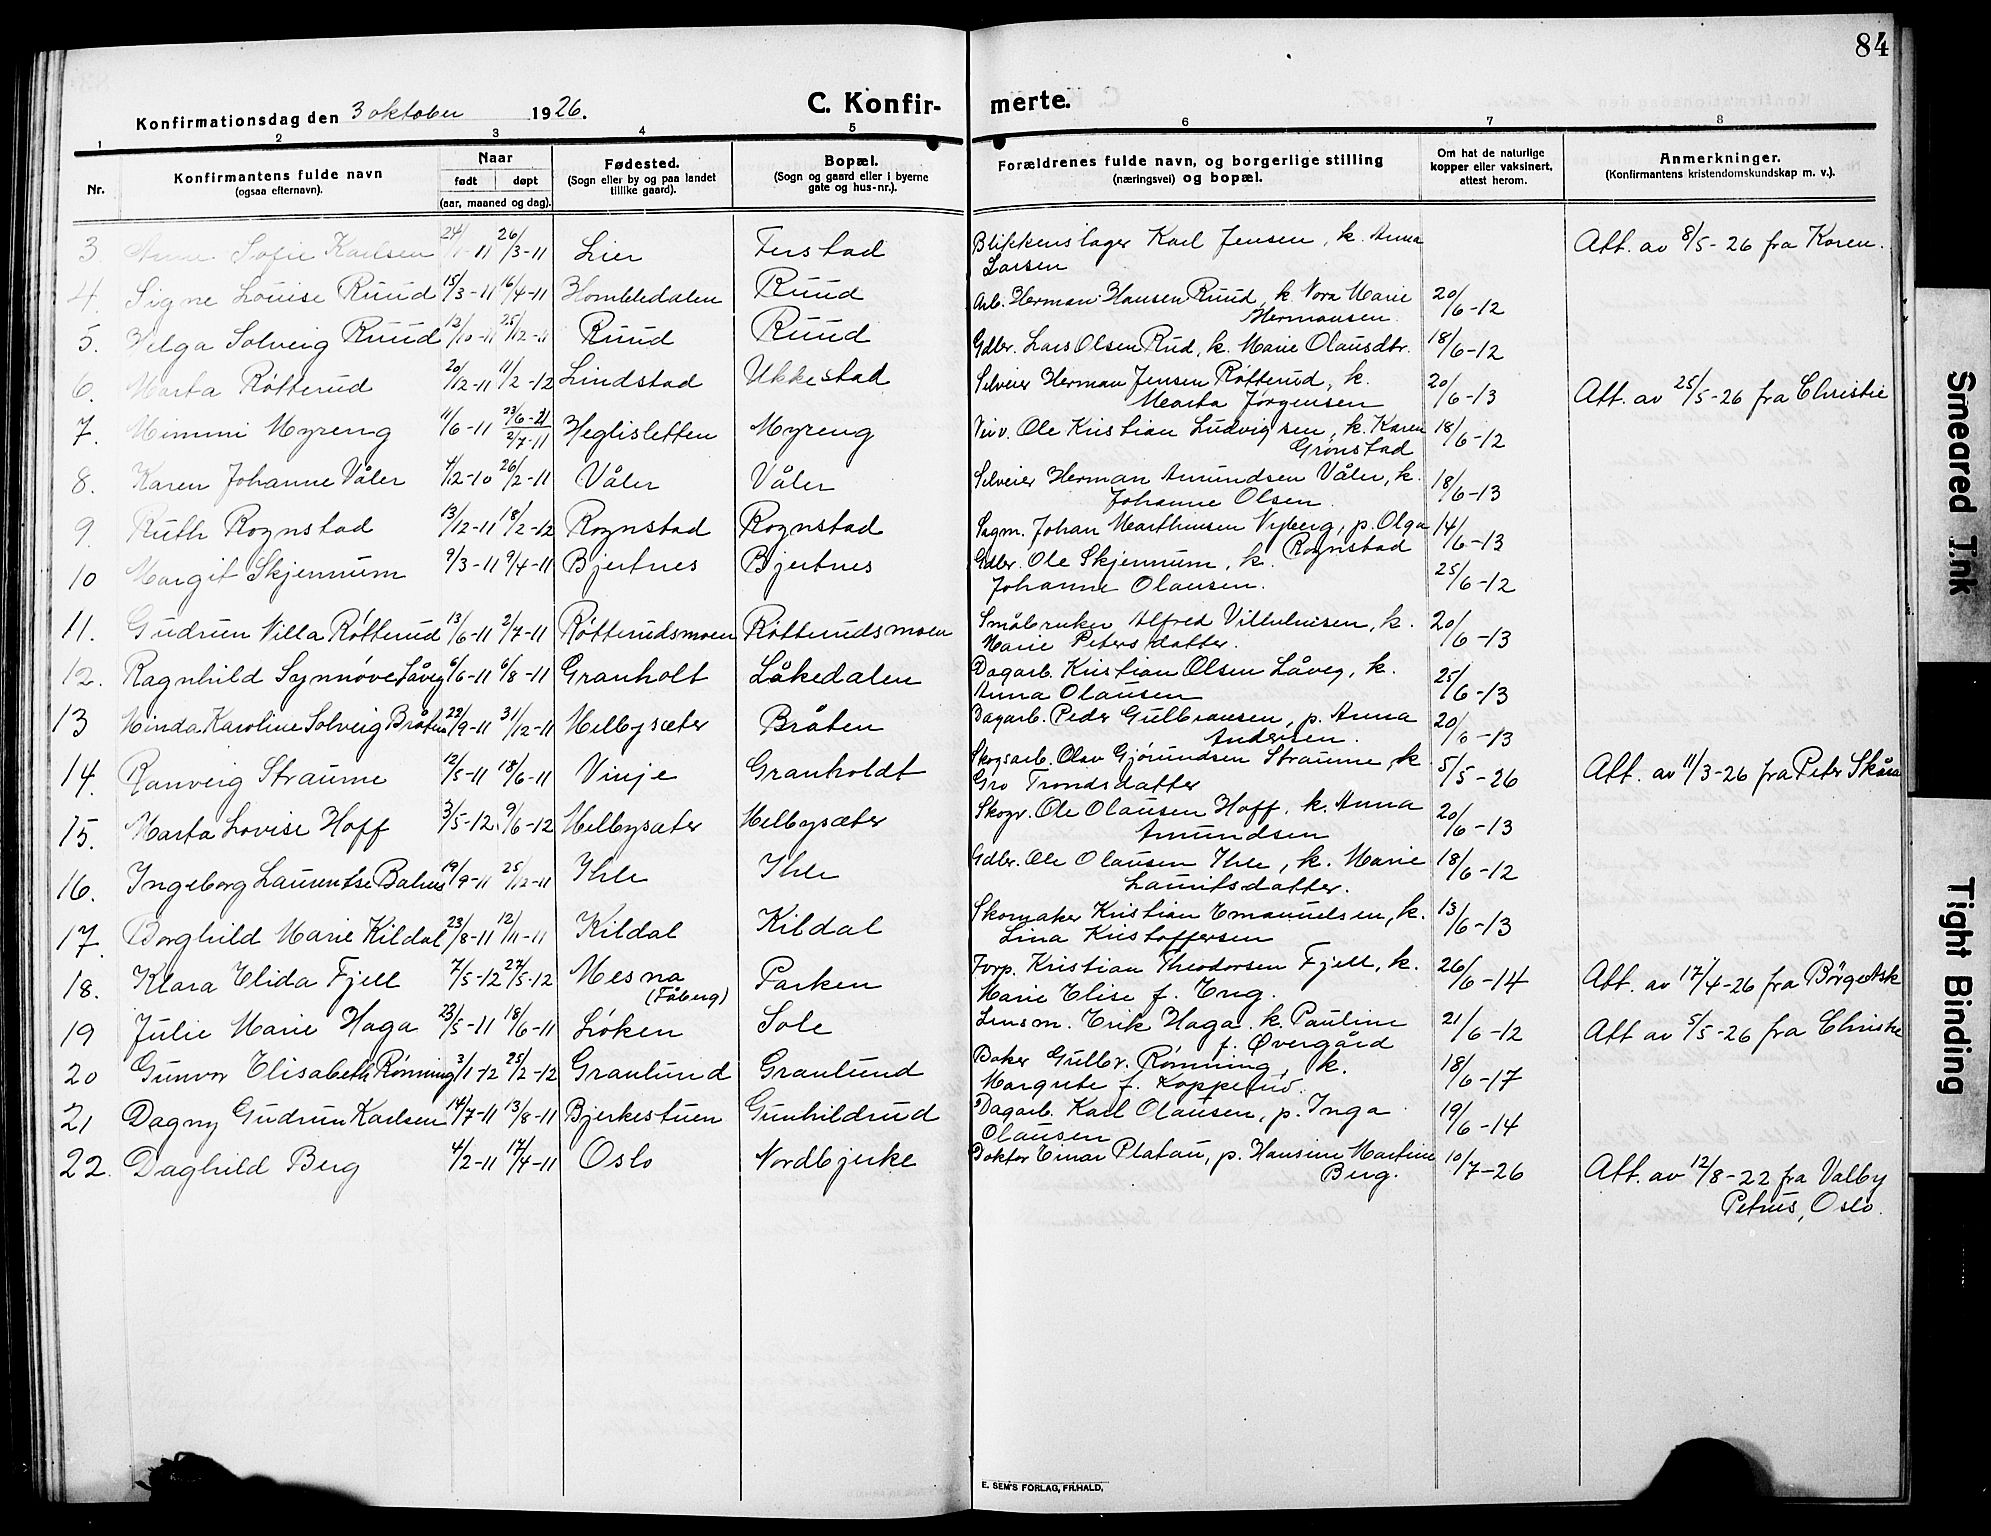 84
Konfirmationsdag den 3 oktober 1926.
C. Konfir-
merte.
1 2 3 4 5 6 7 8
Nr.
Konfirmantens fulde navn
(ogsaa efternavn).
Naar
født døpt
(aar, maaned og dag).
Fødested.
(Sogn eller by og paa landet
tillike gaard).
Bopæl.
(Sogn og gaard eller i byerne
gate og hus-nr.).
Forældrenes fulde navn, og borgerlige stilling
(næringsvei) og bopæl.
Om hat de naturlige
kopper eller vaksinert,
attest herom.
Anmerkninger.
(Konfirmantens kristendomskundskap m. v.).
3. Sofie Karlsen 26/3-11 Lier Ferstad Blikkenslager Karl Jensen, k. Anna Att. av 8/5-26 fra Koren.
Larsen
4. Signe Louise Ruud 15/3-11 16/4-11 Hombledalen Ruud Arb. Herman Hansen Ruud, k. Nora Marie 20/6-12
Hermansen
5. Helga Solveig Ruud 12/10-11 25/12-11 Ruud Ruud Gdbr. Lars Olsen Rud, k. Marie Olausdtr. 18/6-12
6. Marta Røtterud 20/12-11 11/2-12 Lindstad Ukkestad Selveier Herman Jensen Røtterud, k. 20/6-13 Att. av 25/5-26 fra Christie
Marta Jørgensen
7. Mimmi Myreng 11/6-11 23/6-21 2/7-11 Heglisletten Myreng Ole Kristian Ludvigsen, k. Karen 18/6-12
Grønstad
8. Karen Johanne Våler 4/12-10 26/2-11 Våler Våler Selveier Herman Amundsen Våler, k. 18/6-13
Johanne Olsen
9. Ruth Rognstad 13/12-11 18/2-12 Rognstad Rognstad Sagm. Johan Marthinsen Nyberg, p. Olga 14/6-13
Rognstad
10 Margit Skjennum 9/3-11 9/4-11 Bjertnes Bjertnes Gdbr. Ole Skjennum, k. 25/6-12
Johanne Olausen.
11. Gudrun Villa Røtterud 13/6-11 2/7-11 Røtterudsmoen Røtterudsmoen Småbruker Alfred Vilhelmsen, k. 20/6-13
Marie Petersdatter.
12. Ragnhild Synnøve Låveg 6/6-11 6/8-11 Granholt Låkedalen Dagarb. Kristian Olsen Låveg, k. 25/6-13
Anna Olausen
13 Minda Karoline Solveig Bråten 22/9-11 31/12-11 Melbysæter Bråten Dagarb. Peder Gulbransen, p. Anna 20/6-13
Andersen.
14. Ranveig Straume 12/5-11 18/6-11 Vinje Granholdt Skogsarb. Olav Gjørundsen Straume, k 5/5-26 Att. av 11/3-26 fra Peter Skåra
Gro Trondsdatter
15. Marta Lovise Hoff 3/5-12 9/6-12 Melbysæter Melbysæter Skogv. Ole Olausen Hoff, k. Anna 20/6-13
Amundsen
16. Ingeborg Laurentse 19/9-11 25/12-11 Ihle Ihle Gdbr. Ole Olausen Ihle, k. Marie 18/6-12
Lauritsdatter.
17. Borghild Marie Kildal 23/8-11 12/11-11 Kildal Kildal Skomaker Kristian Emanuelsen, k. 13/6-13
Lina Kristoffersen
18. Klara Elida Fjell 7/5-12 27/5-12 Mesna Parken Forp. Kristian Theodorsen Fjell, k. 26/6-14 Att. av 17/4-26 fra Børge Ask
(Fåberg) Marie Elise f. Eng.
19 Julie Marie Haga 23/5-11 18/6-11 Løken Sole Lensm. Erik Haga, k. Pauline 21/6-12 Att av 5/5-26 fra Christie
f. Øvergård
20 Gunvor Elisabeth Rønning 3/1-12 25/2-12 Granlund Granlund Baker Gulbr. Rønning, k. 18/6-17
Margrete f. Kopperud.
21 Dagny Gudrun Karlsen 14/7-11 13/8-11 Bjerkestuen Gunhildrud Dagarb. Karl Olausen, p. Inga 19/6-14
Olausen
22. Daghild Berg 4/2-11 17/4-11 Oslo Nordbjerke Doktor Einar Platou, p. Hansine Martine 10/7-26 Att. av 12/8-22 fra Valby
Berg. Petrus, Oslo.
E. SEM'S FORLAG, FR.HALD.
Smeared Ink
Tight Binding